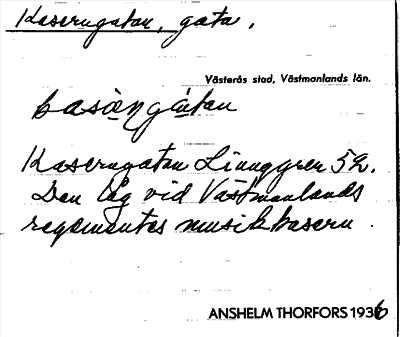 Kaserngatan, gata.
Västerås stad, Västmanlands län.
basä̀ŋgàtan
Kaserngatan Linnggren 52.
Den låg vid Västmanlands
regementes musikkasern.
ANSHELM THORFORS 1936